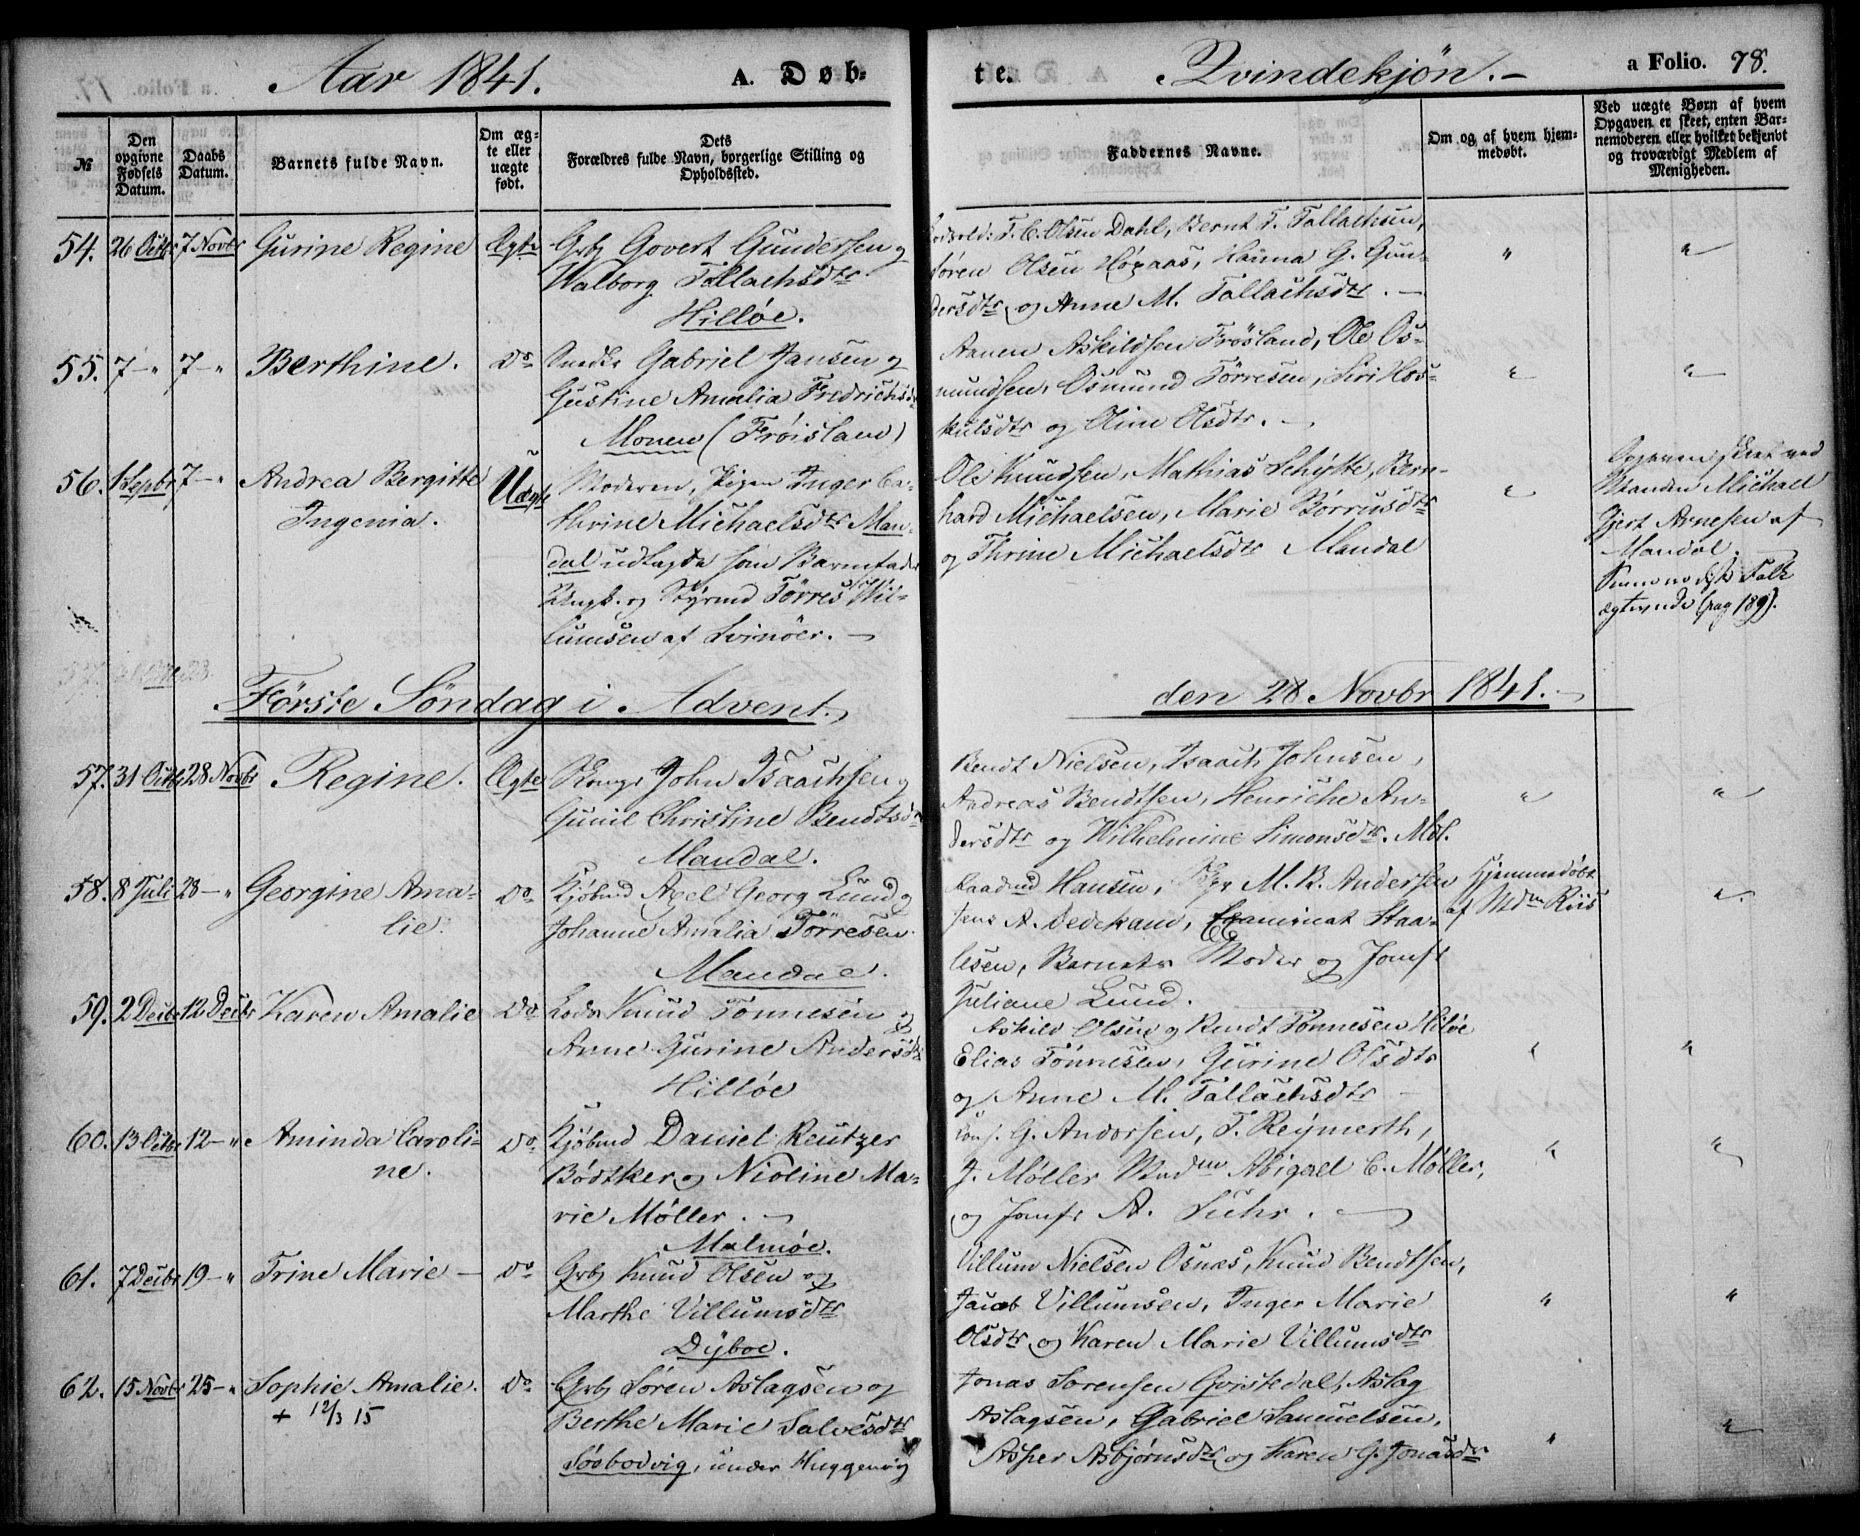 Aar 1841. A. Døb-
te. Qvindekjön. - a Folio. 78.
№
Den opgivne Fødsels Datum.
Daabs Datum.
Barnets fulde Navn.
Om ægte eller uægte født.
Dets Forældres fulde Navn, borgerlige Stilling og Opholdssted.
Faddernes Navne.
Om og af hvem hjemmedøbt.
Ved uægte Børn af hvem Opgaven er skeet, enten Barnemoderen eller hvilket bekjendt og troværdigt Medlem af Menigheden.
54. 26 Octbr 7 Novbr Gurine Regine Ægte Grbj Govert Gundersen og
Walborg Tallachsdtr
Hilløe.
T. C. Olsen Dahl, Bernt T. Tallachsen,
Søren Olsen Høgaas, Hanna G. Gun-
dersdtr og Anne M. Tallachsdtr. -
55. 7 - " 7 - " Berthine. Do Gabriel Jansen og
Gustine Amalia Fredrichsdtr
Monen (Frøisland)
Aanen Askildsen Frösland, Ole Os-
mundsen, Osmund Törresen, Siri Hos-
kulsdtr og Oline Olsdtr. -
56. 1 Septbr 7 - " Andrea Bergitte
Ingenia.
Uægte Moderen, Pigen Inger Ca-
thrine Michaelsdtr Man-
dal udlagde som Barnefader
Ungk. og Styrmd Törres Wil-
lumsen af Svinöer. -
Ole Knudsen, Mathias Schytte, Bern-
hard Michaelsen, Marie Börresdtr
og Thrine Michaelsdtr Mandal
Opgaven skeet ved
Manden Michael
Gjert Arnesen af
Mandal.
Folk
ægteviede (pag 189).
Förste Söndag i Advent. den 28 Novbr 1841. -
57. 31 Octbr 28 Novbr Regine. Ægte John Isaachsen og
Gunil Christine Bendtsdtr
Mandal.
Bendt Nielsen, Isaach Johnsen,
Andreas Bendtsen, Henriche An-
dersdtr og Wilhelmine Simonsdtr. Mdl.
58. 8 Juli 28 - " Georgine Ama-
lie.
Do Kjöbmd Axel Georg Lund og
Johanne Amalia Törresen.
Mandal.
Raadmd Hansen, M. B. Andersen
A. Dedekam, Examinat Staa-
lesen, Barnets Moder og Jomfr
Juliane Lund.
Hjemmedöbt
af Mdm Riis
59. 2 Decbr 12 Decbr Karen Amalie Do Lods Knud Tönnesen og
Anne Gurine Andersdtr
Hilløe
Askild Olsen og Bendt Tönnesen Hilöe
Elias Tönnesen, Gurine Olsdtr
og Anne M. Tallachsdtr -
60. 13 Octbr 12 - " Aminda Caroli-
ne.
Do Kjöbmd Daniel Reutzer
Bödtker og Nicoline Ma-
rie Møller. -
Malmöe.
Cons. G. Andorsen, T. Reymerth,
J. Møller Madm Abigael C. Møller,
og Jomfr A. Suhr. -
61. 7 Decbr 19 - " Trine Marie - Do Grbj Knud Olsen og
Marthe Villumsdtr
Dyboe.
Villum Nielsen Osnæs, Knud Bendtsen,
Jacob Villumsen, Inger Marie
Olsdtr og Karen Marie Villumsdtr
62. 15 Novbr 25 - " Sophie Amalie.
+ 12/3 15
Do Grbj Sören Aslagsen og
Berthe Marie Salvesdtr
Søbodvig, under Huggenvig
Jonas Sørensen Qvistedal, Aslag
Aslagsen, Gabriel Samuelsen,
Asper Asbjørnsdtr og Karen G. Jonasdtr